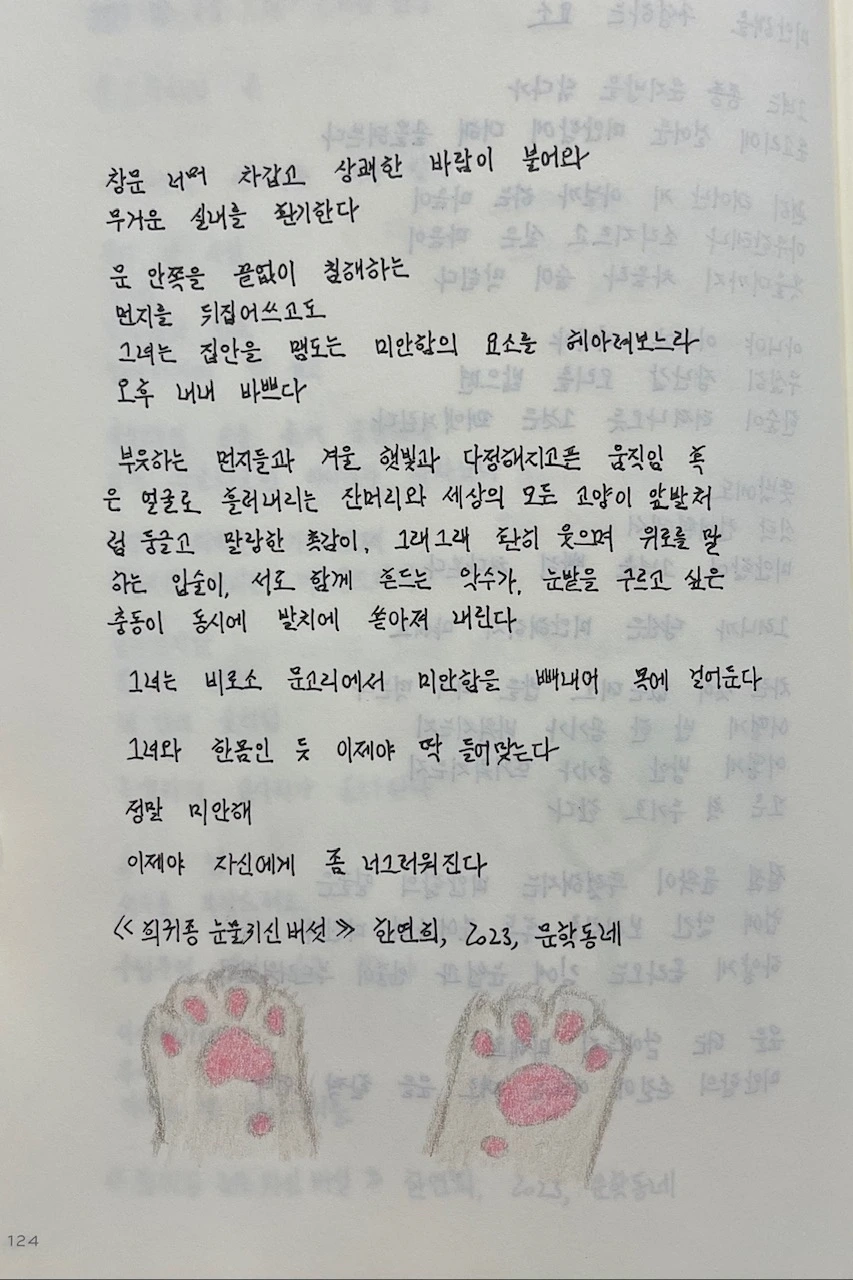 창문 너머 차갑고 상쾌한 바람이 불어와
무거운 실내를 환기한다
문 안쪽을 끝없이 침해하는
먼지를 뒤집어쓰고도
그녀는 집안을 맴도는 미안함의 요소를 헤아려보느라
오후 내내 바쁘다
부유하는 먼지들과 겨울 햇빛과 다정해지고픈 움직임 혹
은 얼굴로 흘러내리는 잔머리와 세상의 모든 고양이 앞발처
럼 둥글고 말랑한 촉감이, 그래그래 환히 웃으며 위로를 말
하는 입술이, 서로 함께 흔드는 악수가, 눈밭을 구르고 싶은
충동이 동시에 발치에 쏟아져 내린다
그녀는 비로소 문고리에서 미안함을 빼내어 목에 걸어둔다
그녀와 한몸인 듯 이제야 딱 들어맞는다
정말 미안해
이제야 자신에게 좀 너그러워진다
≪희귀종 눈물귀신버섯≫ 한연희, 2023, 문학동네
124